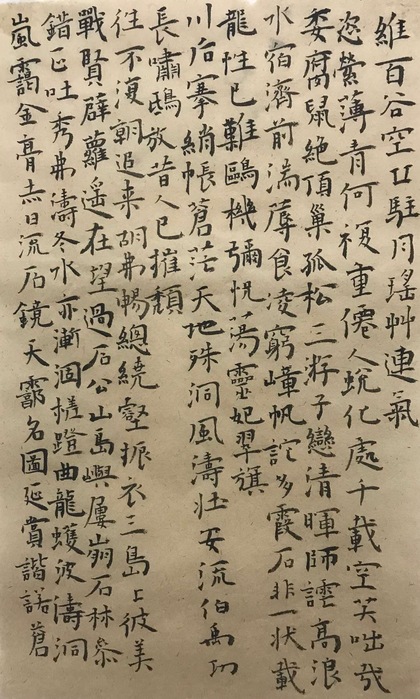 維百谷空廿駐月瑤艸連氣
恣縈薄青何複重僊人蛻化處千載空咄哉
委腐鼠絕頂巢孤松三游子戀清暉師高浪
水宿濟前湍蓐食淩窮嶂帆詫多霞石非一狀載
龍性已難鷗機彌悅蕩靈妃翠旗
川后搴綃帳蒼茫天地殊洞風濤壯安流伯禹功
長嘯鴟放昔人已摧頹
往不復朝追來胡弗暢總繞壑振衣三島上彼美
戰賢薜蘿遙在望過石公山島嶼屢崩石林參
錯正吐秀弗濤冬水亦漸涸槎蹬曲龍蠖波濤洞
嵐靄金膏赤日流石鏡天霩名圖延賞諧諾蒼